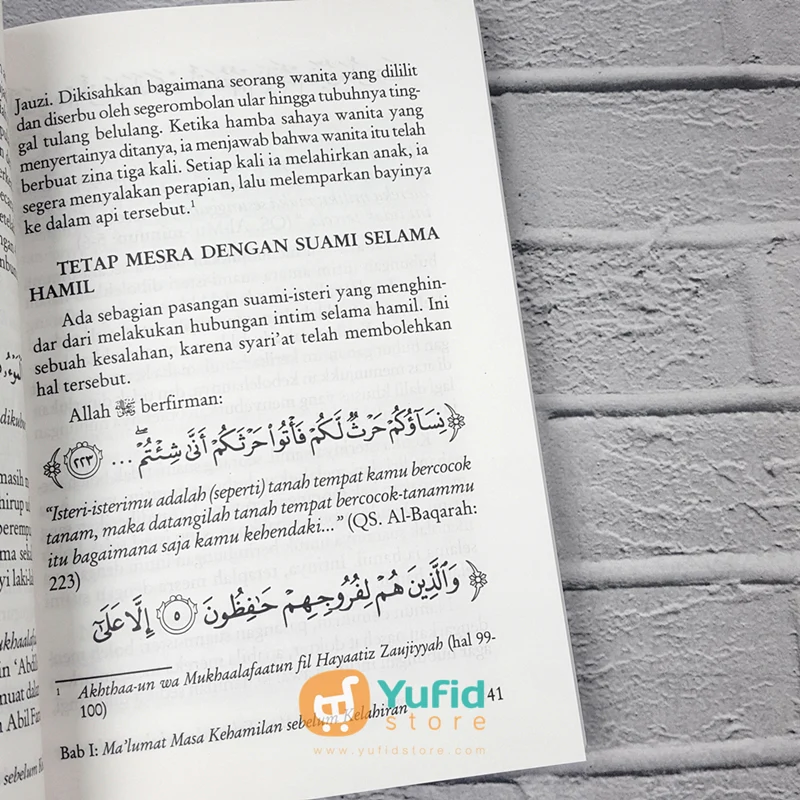 Jauzi. Dikisahkan bagaimana seorang wanita yang dililit
dan diserbu oleh segerombolan ular hingga tubuhnya ting-
gal tulang belulang. Ketika hamba sahaya wanita yang
menyertainya ditanya, ia menjawab bahwa wanita itu telah
berbuat zina tiga kali. Setiap kali ia melahirkan anak, ia
segera menyalakan perapian, lalu melemparkan bayinya
ke dalam api tersebut.¹
TETAP MESRA DENGAN SUAMI SELAMA
HAMIL
Ada sebagian pasangan suami-isteri yang menghin-
dar dari melakukan hubungan intim selama hamil. Ini
sebuah kesalahan, karena syari'at telah membolehkan
hal tersebut.
Allah ﷻ berfirman:
نِسَاؤُكُمْ حَرْثٌ لَّكُمْ فَأْتُوا۟ حَرْثَكُمْ أَنَّىٰ شِئْتُمْ ۖ ... ٢٢٣
"Isteri-isterimu adalah (seperti) tanah tempat kamu bercocok
tanam, maka datangilah tanah tempat bercocok-tanammu
itu bagaimana saja kamu kehendaki..." (QS. Al-Baqarah:
223)
وَٱلَّذِينَ هُمْ لِفُرُوجِهِمْ حَـٰفِظُونَ ٥ إِلَّا عَلَىٰٓ
¹ Akhthaa-un wa Mukhaalafaatun fil Hayaatiz Zaujiyyah (hal 99-
100)
41
Bab I: Ma'lumat Masa Kehamilan sebelum Kelahiran
Yufid
store
www.yufidstore.com